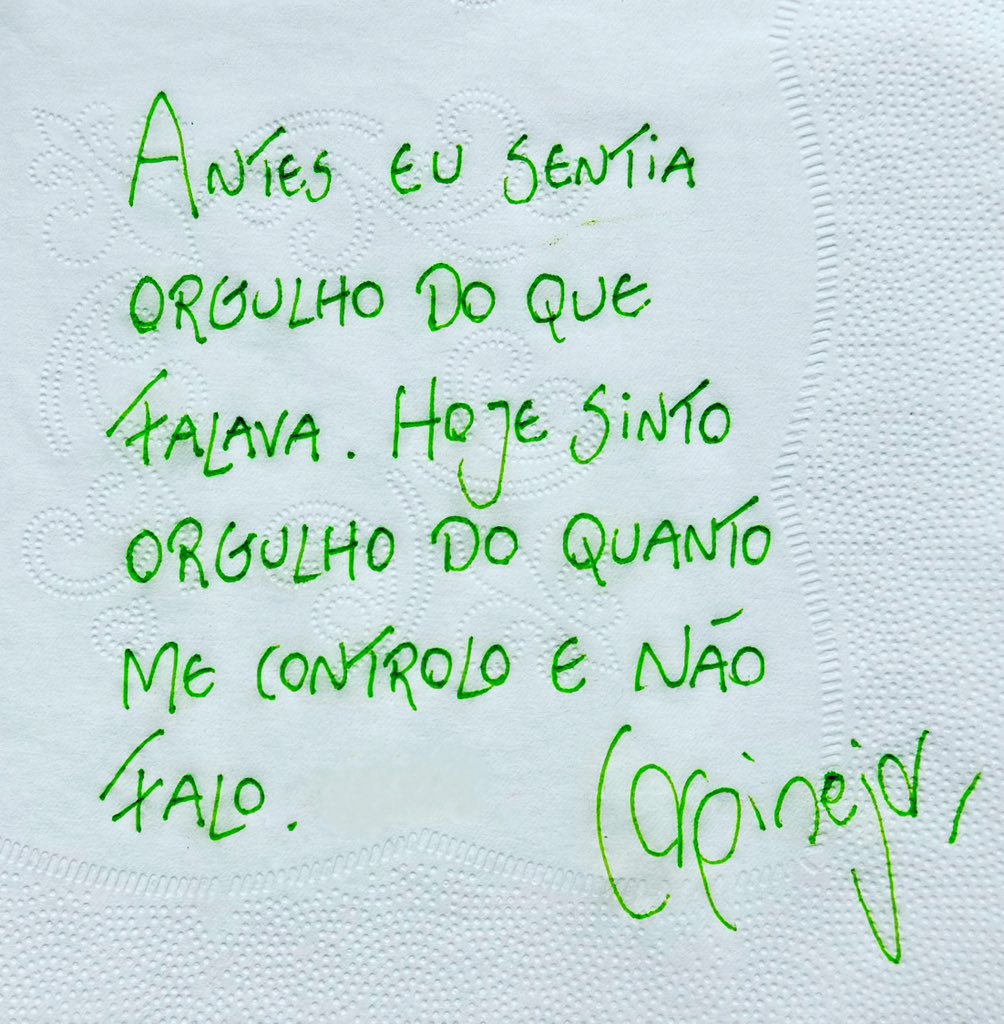 ANTES EU SENTIA
ORGULHO DO QUE
FALAVA. HOJE SINTO
ORGULHO DO QUANTO
ME CONTROLO E NÃO
FALO.
Carpinejar